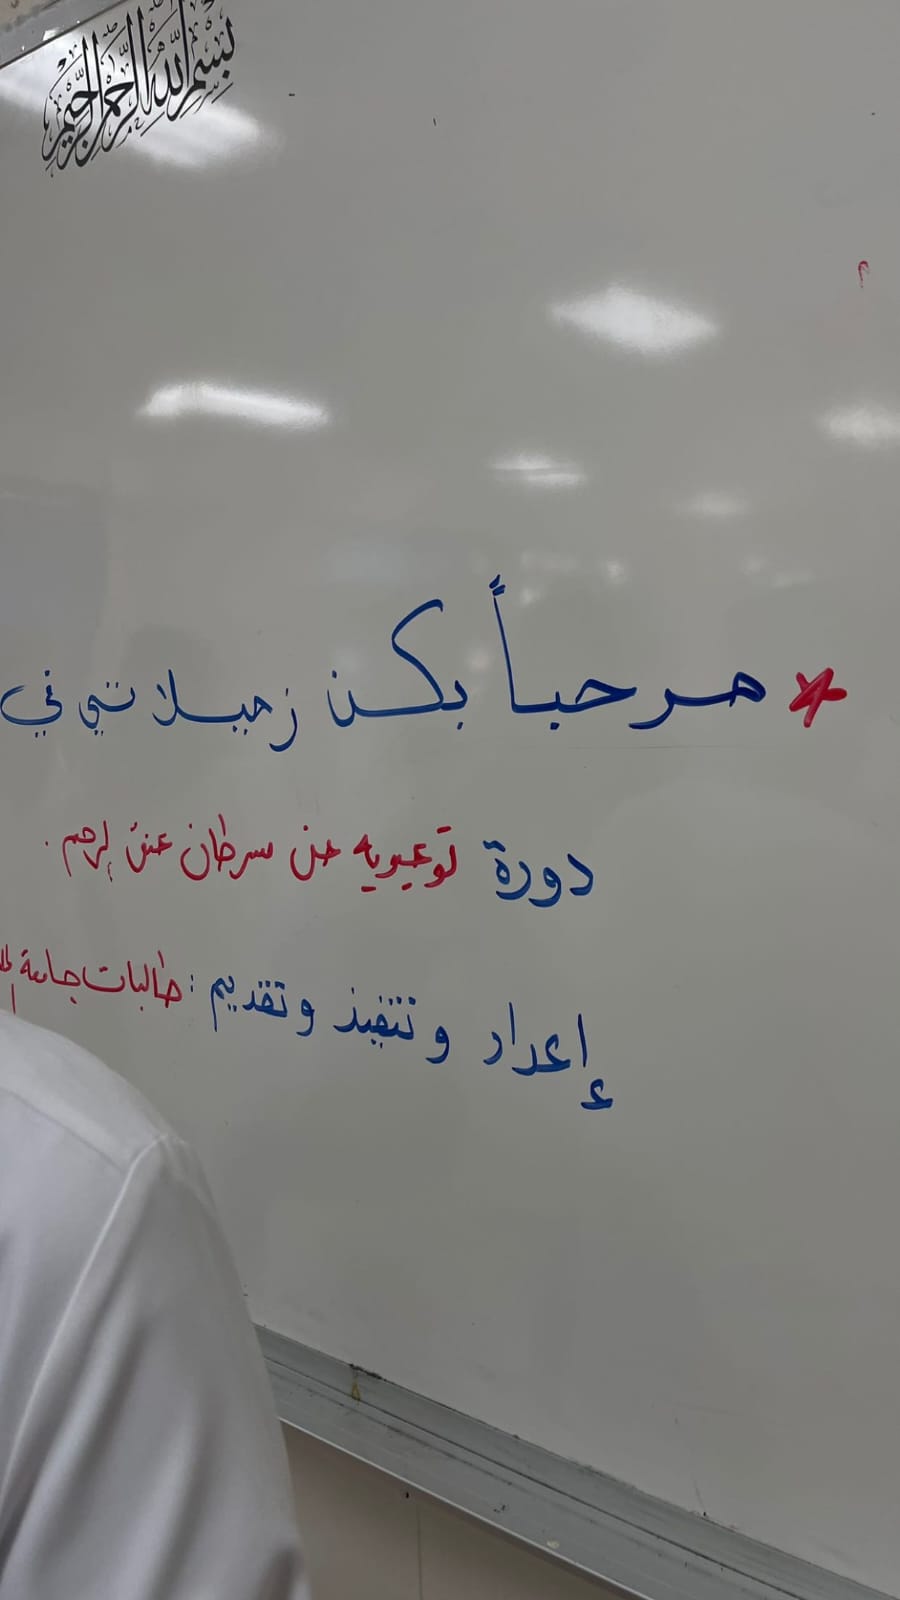 بسم الله الرحمن الرحيم
* مرحبأ بكن زميلاتي في
دورة توعيويه عن سرطان عنق إلرحم.
إعداد وتنفيذ وتقديم: طالبات جامعة